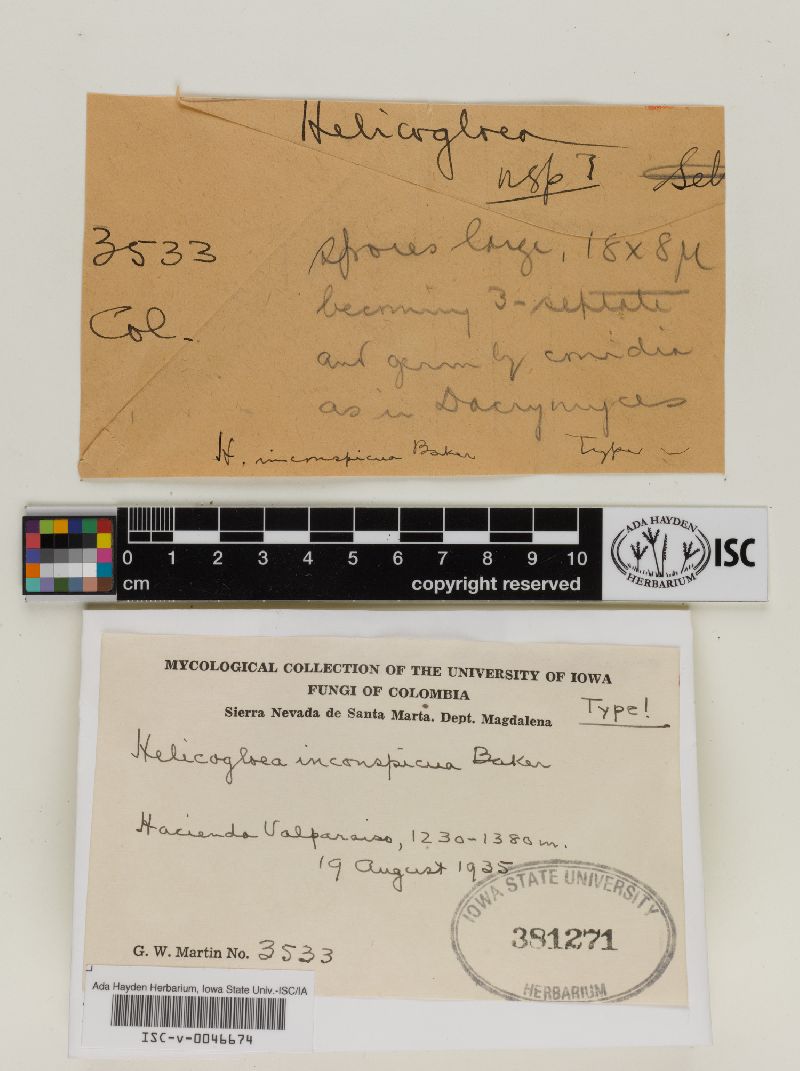 Helicogloea
nsp? Seb
3533 spores large, 18 x 8 µ
becoming 3-septate
Col. and germ by conidia
as in Dacrymyces
H. inconspicua Baker Type
0 1 2 3 4 5 6 7 8 9 10
cm copyright reserved
ADA HAYDEN
HERBARIUM
ISC
MYCOLOGICAL COLLECTION OF THE UNIVERSITY OF IOWA
FUNGI OF COLOMBIA
Sierra Nevada de Santa Marta. Dept. Magdalena
Type!
Helicogloea inconspicua Baker
Hacienda Valparaiso, 1230-1380 m.
19 August 1935
IOWA STATE UNIVERSITY
381271
HERBARIUM
G. W. Martin No. 3533
Ada Hayden Herbarium, Iowa State Univ.-ISC/IA
ISC-v-0046674